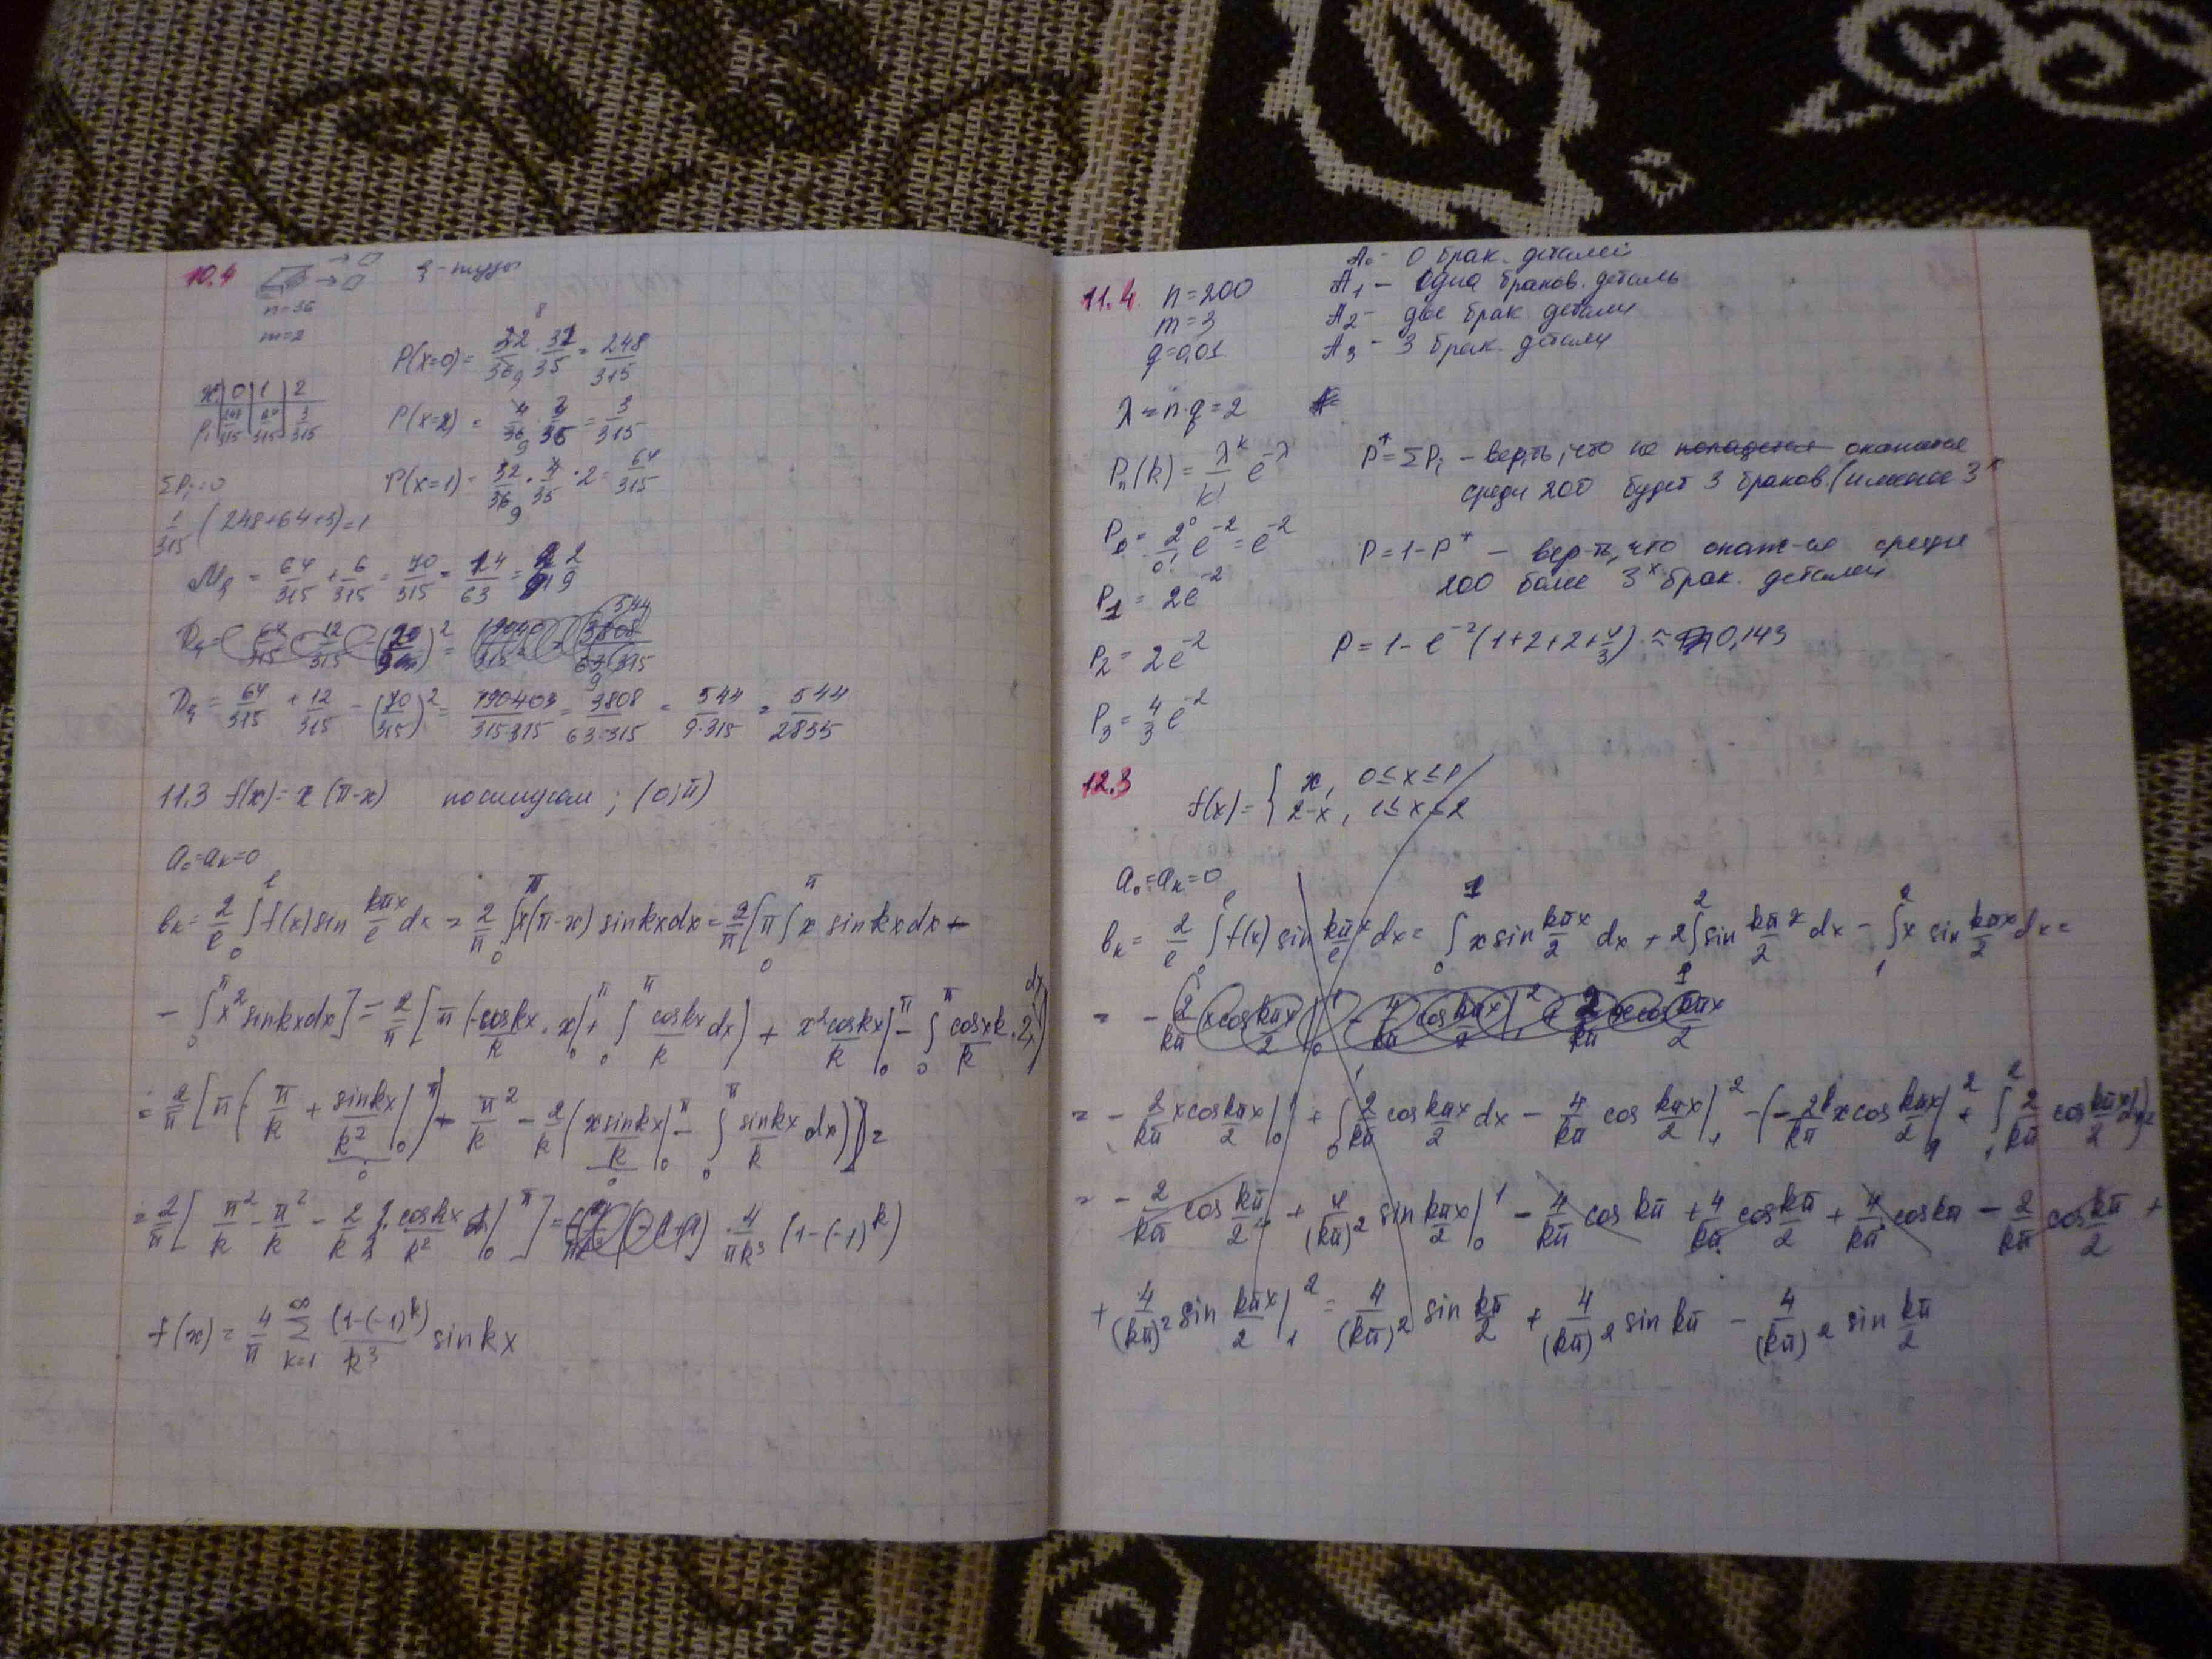 10.4 → → ξ - тузы
n=36
m=2
P(x=0) = 32/36 · 31/35 = 248/315
x 0 1 2
Pi 248/315 64/315 3/315
P(x=2) = 4/36 · 3/35 = 3/315
P(x=1) = 32/36 · 4/35 · 2 = 64/315
ΣPi=0
1/315 (248+64+3)=1
Mξ = 64/315 + 6/315 = 70/315 = 14/63 = 2/9
Dξ = 64/315 + 12/315 - (70/315)² = 3808/63·315 = 544/9·315 = 544/2835
11.3 f(x) = x (π-x) по синусам ; (0;π)
a₀=aₖ=0
bₖ = 2/ℓ ∫₀^ℓ f(x) sin kπx/ℓ dx = 2/π ∫₀^π x(π-x) sinkxdx = 2/π [π ∫₀^π x sinkxdx -
- ∫₀^π x² sinkxdx] = 2/π [π (-coskx/k · x |₀^π + ∫₀^π coskx/k dx) + x²coskx/k |₀^π - ∫₀^π cosxk/k · 2x dx]
= 2/π [π · (π/k + sinkx/k² |₀^π) - π²/k - 2/k (xsinkx/k |₀^π - ∫₀^π sinkx/k dx)] =
= 2/π [π²/k - π²/k - 2/k · coskx/k² |₀^π] = 4/πk³ (1-(-1)^k)
f(x) = 4/π Σ_{k=1}^∞ (1-(-1)^k)/k³ sinkx
11.4 n=200
m=3
q=0,01
A₀ - 0 брак. деталей
A₁ - Одна браков. деталь
A₂ - две брак. детали
A₃ - 3 брак. детали
λ = n·q = 2
Pₙ(k) = λ^k/k! e^-λ
P₀ = 2⁰/0! e⁻² = e⁻²
P₁ = 2e⁻²
P₂ = 2e⁻²
P₃ = 4/3 e⁻²
P* = ΣPi - вер-ть, что не попадется окажется
среди 200 будет 3 браков. (и менее 3ˣ
P=1-P* - вер-ть, что окаж-ся среди
200 более 3ˣ брак. деталей
P = 1 - e⁻² (1+2+2+4/3) ≈ 0,143
12.3 f(x) = { x, 0≤x≤1
2-x, 1≤x≤2
a₀=aₖ=0
bₖ = 2/ℓ ∫₀^ℓ f(x) sin kπx/ℓ dx = ∫₀^1 x sin kπx/2 dx + 2∫₁² sin kπx/2 dx - ∫₁² x sin kπx/2 dx =
= - 2/kπ xcos kπx/2 |₀^1 - 4/kπ cos kπx/2 |₁² + 2/kπ x cos kπx/2
= - 2/kπ xcos kπx/2 |₀^1 + ∫₀^1 2/kπ cos kπx/2 dx - 4/kπ cos kπx/2 |₁² - (-2/kπ xcos kπx/2 |₁² + ∫₁² 2/kπ cos kπx/2 dx) =
= - 2/kπ cos kπ/2 + 4/(kπ)² sin kπx/2 |₀^1 - 4/kπ cos kπ + 4/kπ cos kπ/2 + 4/kπ cos kπ - 2/kπ cos kπ/2 +
+ 4/(kπ)² sin kπx/2 |₁² = 4/(kπ)² sin kπ/2 + 4/(kπ)² sin kπ - 4/(kπ)² sin kπ/2